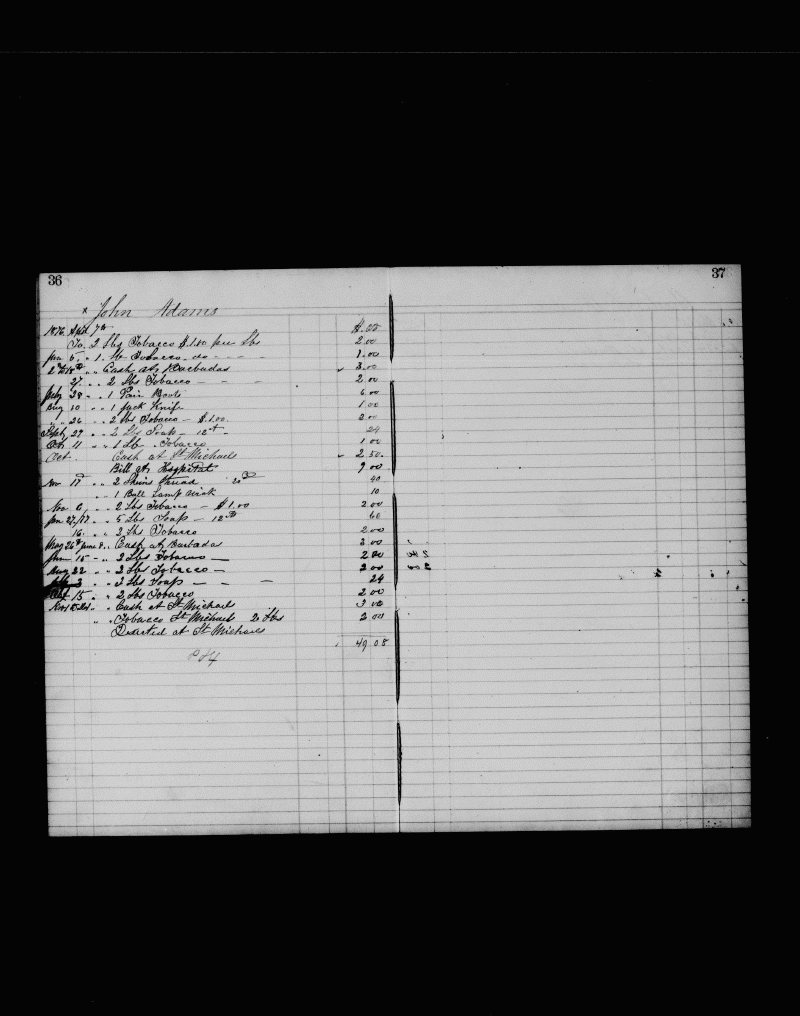 36
37
x John Adams
1876 Sept 7th $. 00
To 2 Lbs Tobacco $1.00 per Lbs 2.00
Jan 5 " 1 lb Tobacco do 1.00
" " Cash at Barbados 3.00
27 " " 2 Lbs Tobacco 2.00
July 28 " 1 Pair Boots 6.00
Aug 10 " " 1 Jack Knife 1.00
" 26 " " 2 lbs Tobacco - $1.00 2.00
Sept 29 " " 2 Lbs Soap - 12ct 24
Oct 11 " " 1 Lb Tobacco 1.00
Oct Cash at St Michaels 2.50
Bill at Hospital 9.00
Nov 17 " " 2 Skeins thread 20 40
" " 1 Ball Lamp wick 10
6 " " 2 Lbs Tobacco - $1.00 2.00
Jan 27/77 " " 5 Lbs Soap - 12 60
16 " " 2 Lbs Tobacco 2.00
May 26th June 8 " Cash at Barbados 3.00
June 15 " " 2 Lbs Tobacco 2.00
Aug 22 " " 2 Lbs Tobacco 2.00
3 " " 2 Lbs Soap 24
Oct 15 " " 2 Lbs Tobacco 2.00
Nov " " Cash at St Michaels 3.00
" " Tobacco St Michaels 2 Lbs 2.00
Deserted at St Michaels
49.08